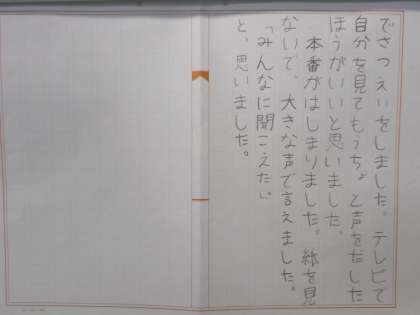 でさつえいをしました。テレビで
自分を見てもうちょっと声をだした
ほうがいいと思いました。
本番がはしまりました。紙を見
ないで、大きな声で言えました。
「みんなに聞こえた」
と、思いました。